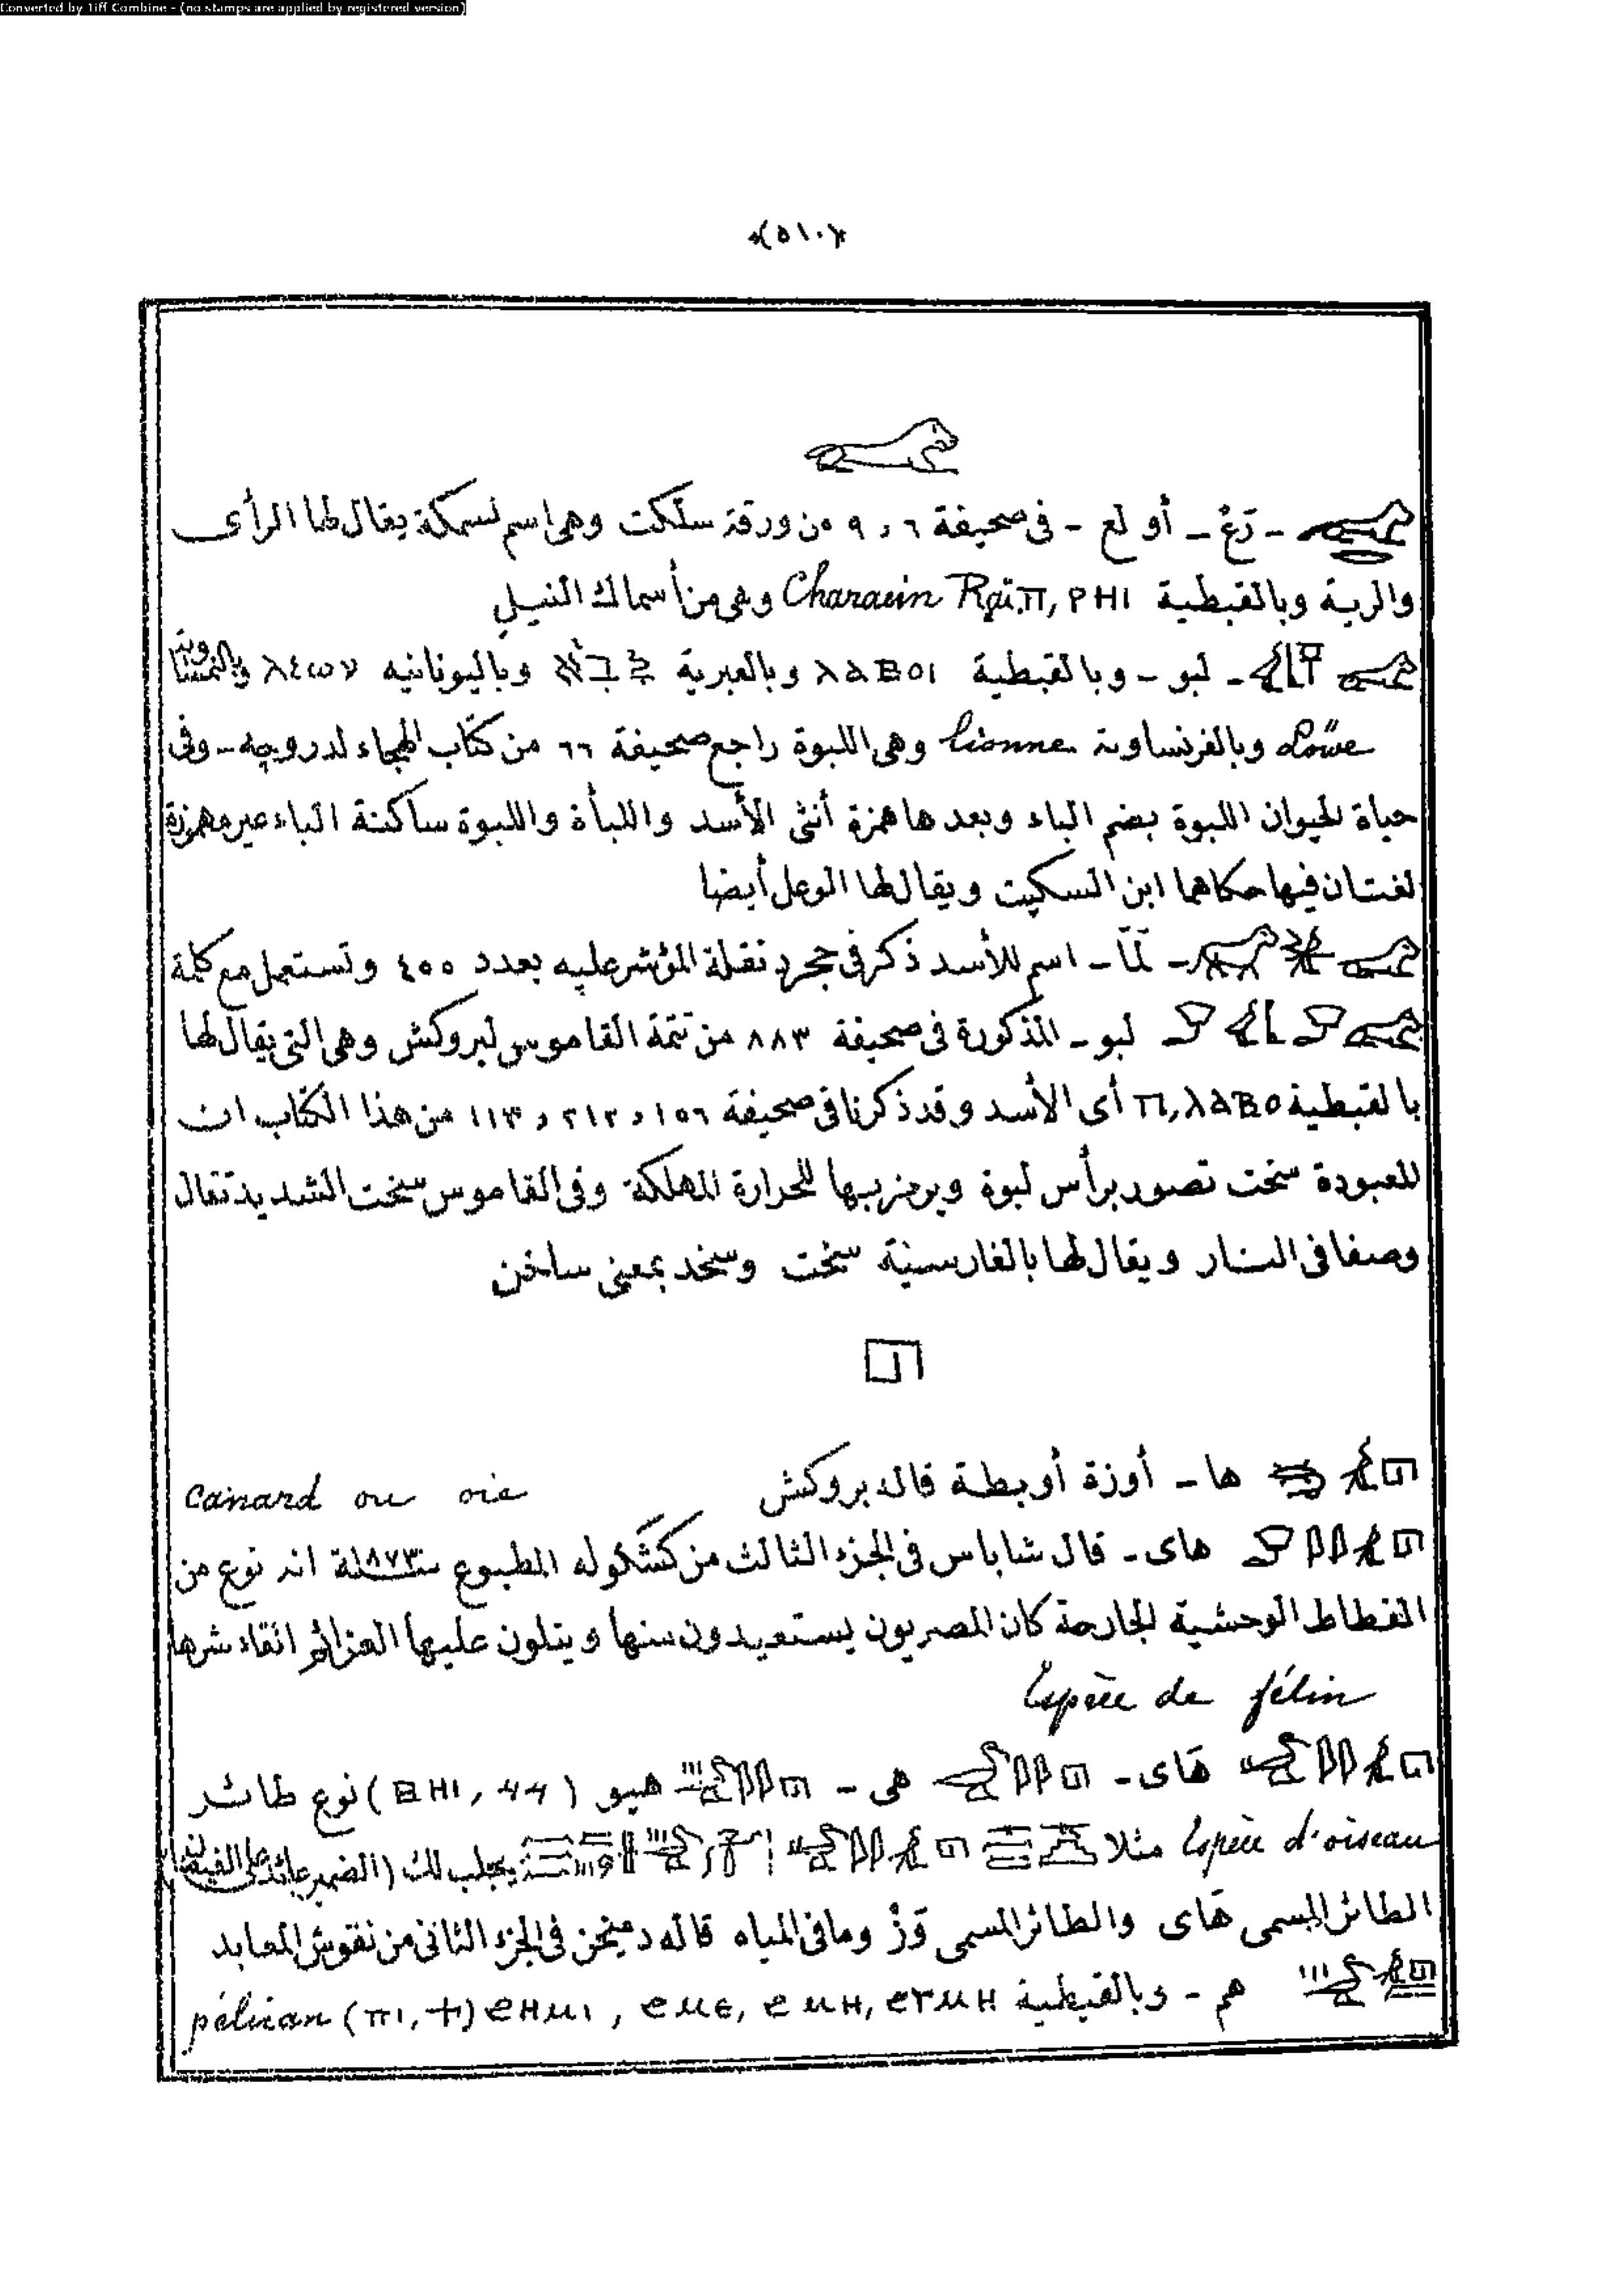 Converted by Tiff Combine - (no stamps are applied by registered version)
*(٥١٠)*
- رَغْ - أو لع - فى صحيفة ٦ , ٩ من ورقة سلكت وهى اسم لسمكة يقال لها الرأى
والرية وبالقبطية ⲡ, ⲣⲏⲓ Characin Raï وهى من أسماك النيل
- لبو - وبالقبطية ⲗⲁⲃⲟⲓ وبالعبرية وباليونانيه λεων
Löwe وبالفرنساوية Lionne وهى اللبوة راجع صحيفة ٦٦ من كتاب الهجاء لدروجيه - وفى
حياة الحيوان اللبوة بضم الباء وبعدها همزة أنثى الأسد واللبأة واللبوة ساكنة الباء غير مهموزة
لغتان فيها حكاهما ابن السكيت ويقال لها الوعل أيضا
- اسم للأسد ذكر فى حجر المؤشر عليه بعدد ٤٥٥ وتستعمل مع كلمة
لبو - المذكورة فى صحيفة ٨٨٣ من تتمة القاموس لبروكش وهى التى يقال لها
بالقبطية ⲡ, ⲗⲁⲃⲟ أى الأسد وقد ذكرنا فى صحيفة ١٥٦ , ٢١٢ , ١١٣ من هذا الكتاب ان
المعبودة سخت تصور برأس لبوة ويرمز بها للحرارة المهلكة وفى القاموس سخت الشديد تقال
وصفا فى النار ويقال لها بالفارسية سخت وسخد بمعنى ساخن
ها - أوزة أو بطة قاله بروكش canard ou oie
هاى - قال شاباس فى الجزء الثالث من كشكوله المطبوع سنة ١٨٧٣ انه نوع من
القطاط الوحشية الجارحة كان المصريون يستعيذون منها ويتلون عليها العزائم اتقاء شرها
Espèce de félin
هَاى - هى - هيو (ⲃⲏⲓ) نوع طائر
Espèce d'oiseau مثلا يجلب لك (الضمير عائد على
الطائر المسمى هَاى والطائر المسمى وَزْ وما فى المياه قاله دميخن فى الجزء الثانى من نقوش المعابد
هم - وبالقبطية ϩⲩⲙⲏ, ϩⲙⲏ, ϩⲙⲉ, ϩⲏⲙⲓ (ⲡⲓ, ϯ) pélican